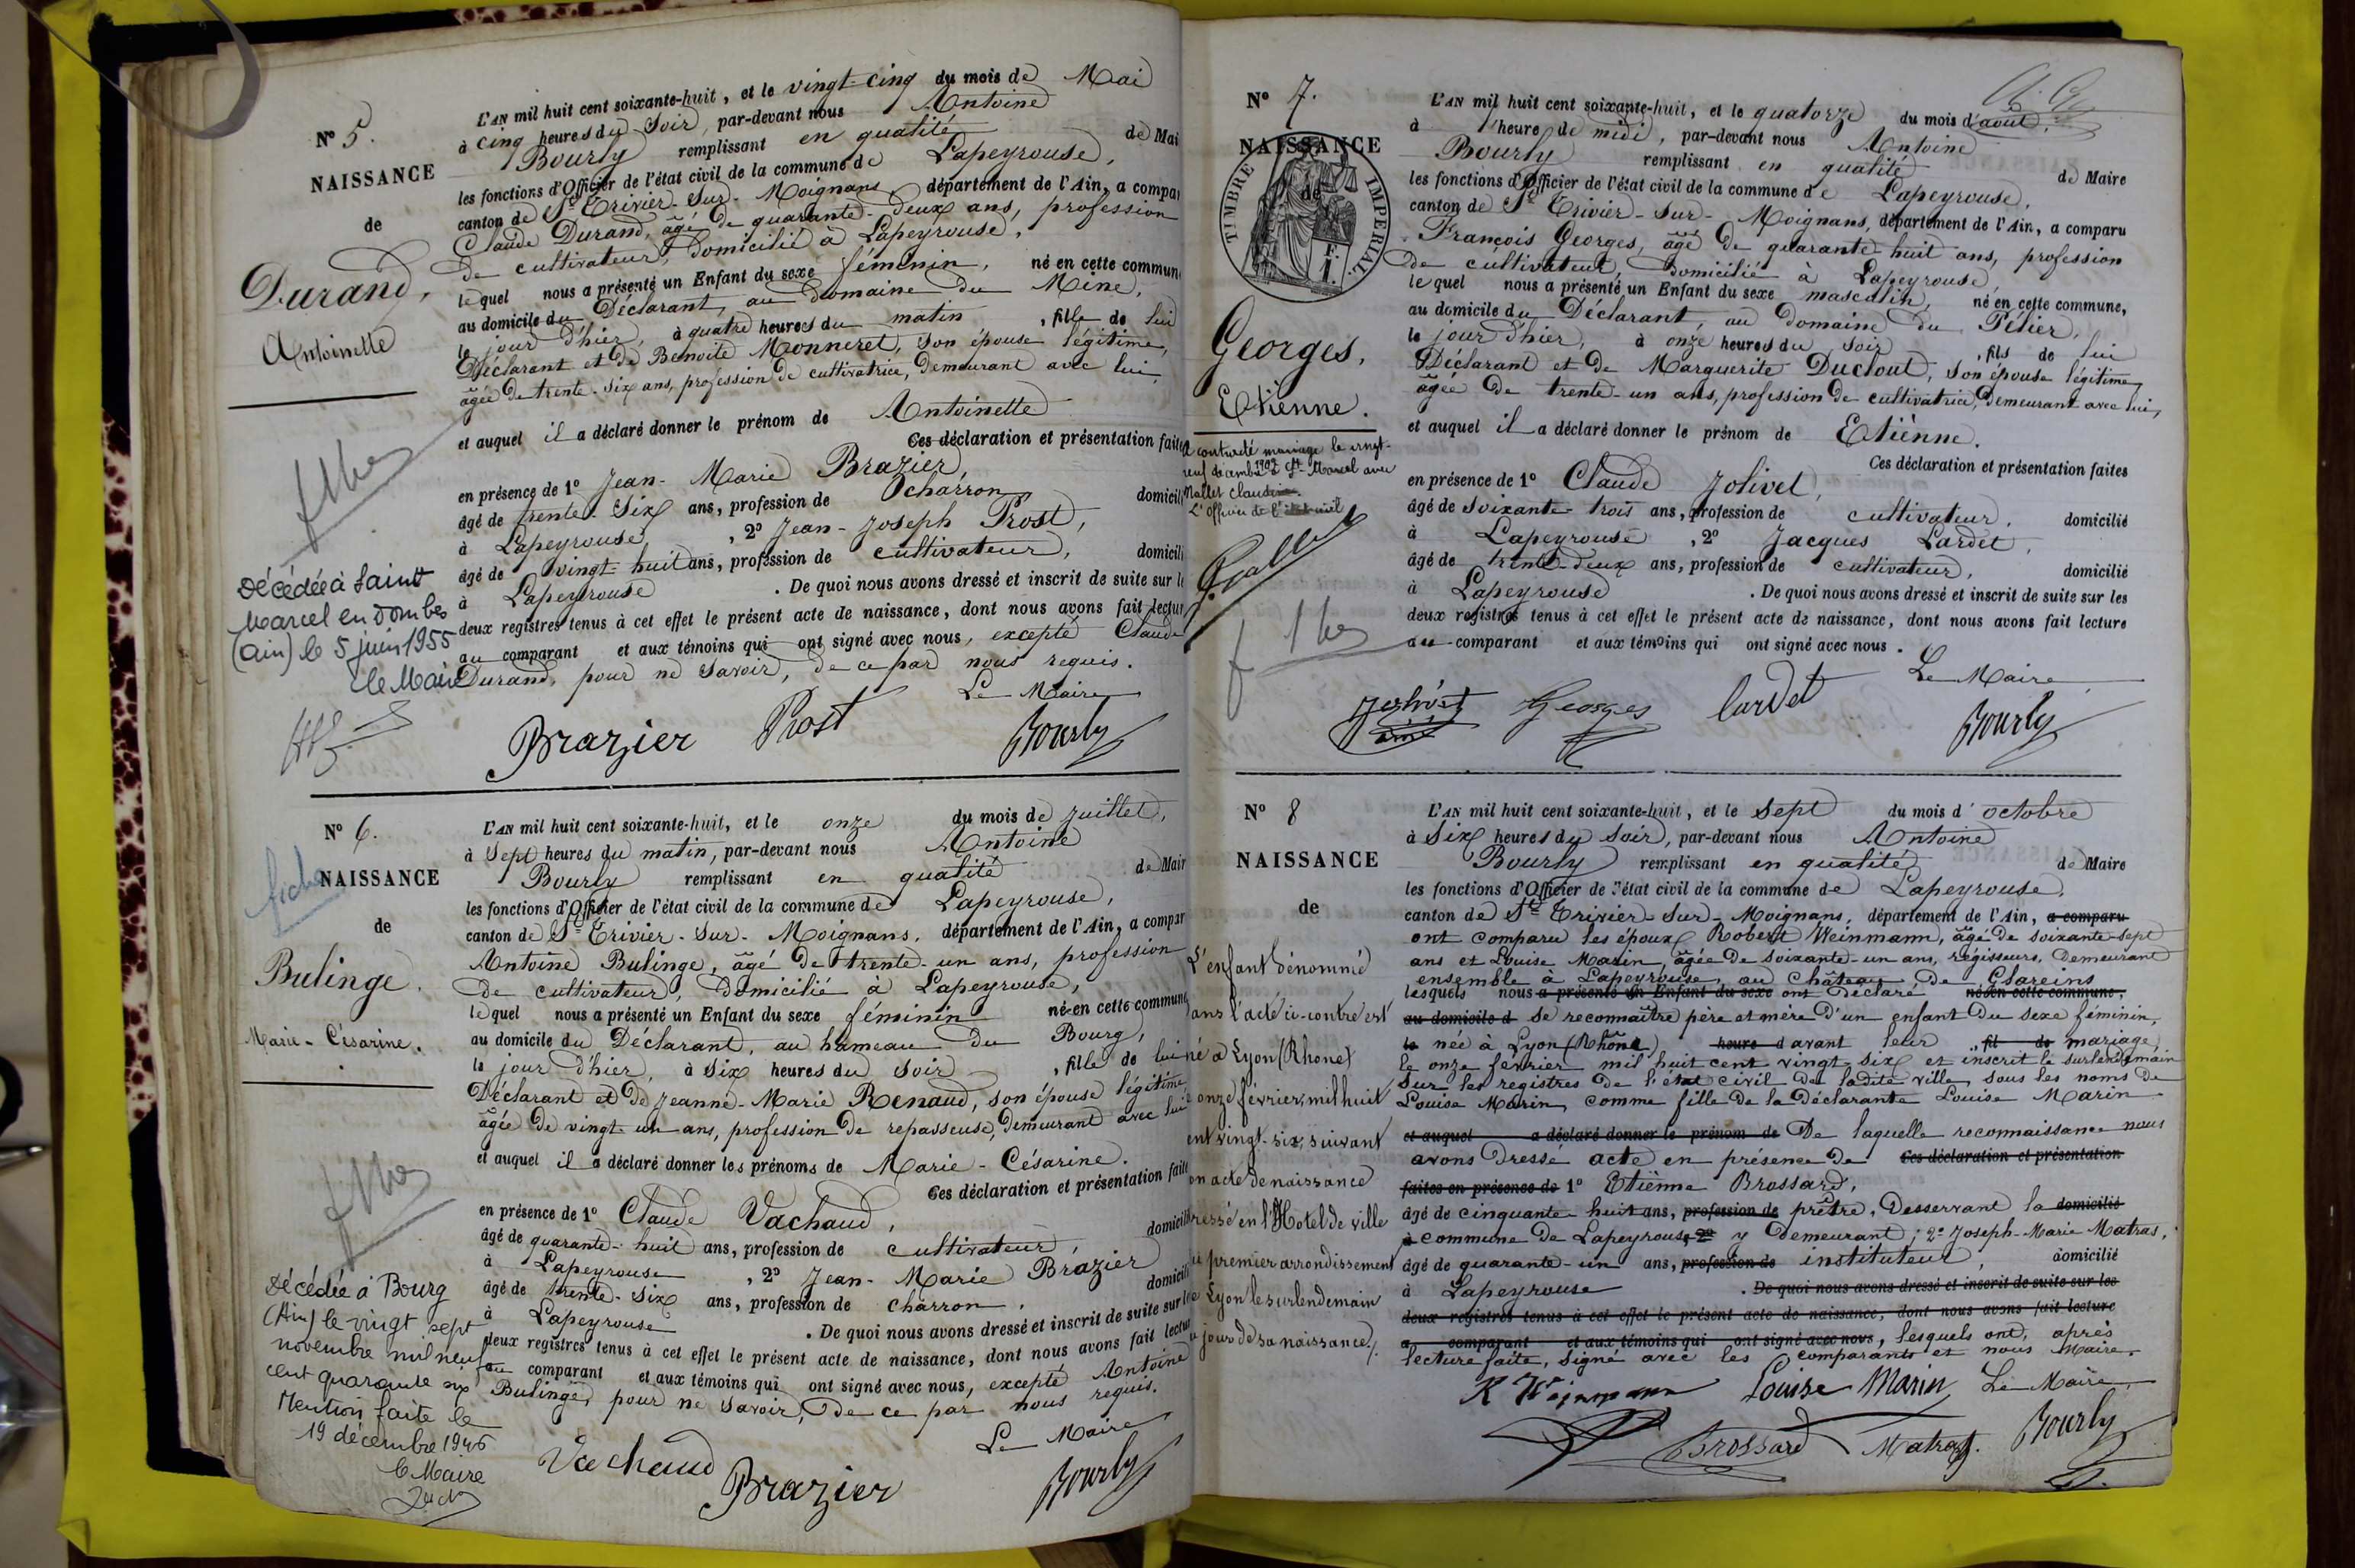 N° 5.
NAISSANCE
de
Durand,
Antoinette
Décédée à Saint
Marcel en Dombes
(Ain) le 5 juin 1955
Le Maire
L'AN mil huit cent soixante-huit, et le vingt-cinq du mois de Mai
à cinq heures du soir, par-devant nous Antoine
Bourly remplissant en qualité de Mai
les fonctions d'Officier de l'état civil de la commune de Lapeyrouse,
canton de St Trivier-sur-Moignans, département de l'Ain, a compa
Claude Durand, âgé de quarante-deux ans, profession
de cultivateur, domicilié à Lapeyrouse,
lequel nous a présenté un Enfant du sexe féminin, né en cette commun
au domicile du Déclarant, au domaine du Mine,
le jour d'hier, à quatre heures du matin, fille de lui
Déclarant et de Benoite Monneret, son épouse légitime,
âgée de trente-six ans, profession de cultivatrice, demeurant avec lui,
et auquel il a déclaré donner le prénom de Antoinette
Ces déclaration et présentation faite
en présence de 1° Jean-Marie Brazier,
âgé de trente-six ans, profession de charron domicili
à Lapeyrouse, 2° Jean-Joseph Prost,
âgé de vingt-huit ans, profession de cultivateur, domicili
à Lapeyrouse. De quoi nous avons dressé et inscrit de suite sur le
deux registres tenus à cet effet le présent acte de naissance, dont nous avons fait lectur
au comparant et aux témoins qui ont signé avec nous, excepté Claude
Durand, pour ne savoir, de ce par nous requis.
Le Maire
Brazier Prost Bourly
N° 6.
fiche
NAISSANCE
de
Bulinge.
Marie-Césarine.
Décédée à Bourg
(Ain) le vingt sept
novembre mil neuf
cent quarante six
Mention faite le
19 décembre 1946
Le Maire
L'AN mil huit cent soixante-huit, et le onze du mois de juillet,
à sept heures du matin, par-devant nous Antoine
Bourly remplissant en qualité de Mair
les fonctions d'Officier de l'état civil de la commune de Lapeyrouse,
canton de St Trivier-sur-Moignans, département de l'Ain, a compar
Antoine Bulinge, âgé de trente-un ans, profession
de cultivateur, domicilié à Lapeyrouse,
lequel nous a présenté un Enfant du sexe féminin né en cette commune
au domicile du Déclarant, au hameau du Bourg,
le jour d'hier, à six heures du soir, fille de lui
Déclarant et de Jeanne-Marie Renaud, son épouse légitime
âgée de vingt-un ans, profession de repasseuse, demeurant avec lui
et auquel il a déclaré donner les prénoms de Marie-Césarine.
Ces déclaration et présentation faite
en présence de 1° Claude Vachaud,
âgé de quarante-huit ans, profession de cultivateur domicili
à Lapeyrouse, 2° Jean-Marie Brazier
âgé de trente-six ans, profession de charron, domicili
à Lapeyrouse. De quoi nous avons dressé et inscrit de suite sur le
deux registres tenus à cet effet le présent acte de naissance, dont nous avons fait lectur
au comparant et aux témoins qui ont signé avec nous, excepté Antoine
Bulinge, pour ne savoir, de ce par nous requis.
Le Maire
Vachaud Brazier Bourly
N° 7.
NAISSANCE
de
TIMBRE IMPERIAL
Georges,
Etienne.
A contracté mariage le vingt-
neuf décembre 1902 à St Marcel avec
Mallet Claudine.
L'Officier de l'état civil
L'AN mil huit cent soixante-huit, et le quatorze du mois d'août,
à heure de midi, par-devant nous Antoine
Bourly remplissant en qualité de Maire
les fonctions d'Officier de l'état civil de la commune de Lapeyrouse,
canton de St Trivier-sur-Moignans, département de l'Ain, a comparu
François Georges, âgé de quarante-huit ans, profession
de cultivateur, domicilié à Lapeyrouse,
lequel nous a présenté un Enfant du sexe masculin, né en cette commune,
au domicile du Déclarant, au domaine du Pélier,
le jour d'hier, à onze heures du soir, fils de lui
Déclarant et de Marguerite Duclout, son épouse légitime,
âgée de trente-un ans, profession de cultivatrice, demeurant avec lui,
et auquel il a déclaré donner le prénom de Etienne.
Ces déclaration et présentation faites
en présence de 1° Claude Jolivet,
âgé de soixante-trois ans, profession de cultivateur, domicilié
à Lapeyrouse, 2° Jacques Lardet,
âgé de trente-deux ans, profession de cultivateur, domicilié
à Lapeyrouse. De quoi nous avons dressé et inscrit de suite sur les
deux registres tenus à cet effet le présent acte de naissance, dont nous avons fait lecture
au comparant et aux témoins qui ont signé avec nous.
Le Maire
Georges Lardet Bourly
N° 8
NAISSANCE
de
L'enfant dénommé
dans l'acte ci-contre est
né à Lyon (Rhône)
onze février, mil huit
cent vingt-six, suivant
son acte de naissance
dressé en l'Hotel de ville
du premier arrondissement
de Lyon le surlendemain
du jour de sa naissance.
L'AN mil huit cent soixante-huit, et le sept du mois d'octobre
à six heures du soir, par-devant nous Antoine
Bourly remplissant en qualité de Maire
les fonctions d'Officier de l'état civil de la commune de Lapeyrouse,
canton de St Trivier-sur-Moignans, département de l'Ain, a comparu
ont comparu les époux Robert Weinmann, âgé de soixante-sept
ans et Louise Marin, âgée de soixante-un ans, régisseurs, demeurant
ensemble à Lapeyrouse, au château de Glareins
lesquels nous a présenté un Enfant du sexe ont déclaré né en cette commune,
au domicile d se reconnaître père et mère d'un enfant du sexe féminin,
le née à Lyon (Rhône) heure d avant leur fil de mariage
le onze février mil huit cent vingt-six et inscrit le surlendemain
sur les registres de l'état civil de ladite ville, sous les noms de
Louise Marin, comme fille de la Déclarante Louise Marin
et auquel a déclaré donner le prénom de De laquelle reconnaissance nous
avons dressé acte en présence de Ces déclaration et présentation
faites en présence de 1° Etienne Brossard,
âgé de cinquante-huit ans, profession de prêtre, desservant la domicilié
à commune de Lapeyrouse, 2° y demeurant; 2° Joseph-Marie Matras,
âgé de quarante-un ans, profession de instituteur, domicilié
à Lapeyrouse. De quoi nous avons dressé et inscrit de suite sur les
deux registres tenus à cet effet le présent acte de naissance, dont nous avons fait lecture
a comparant et aux témoins qui ont signé avec nous, lesquels ont, après
lecture faite, signé avec les comparants et nous Maire.
R Weinmann Louise Marin Le Maire,
Brossard Matras. Bourly